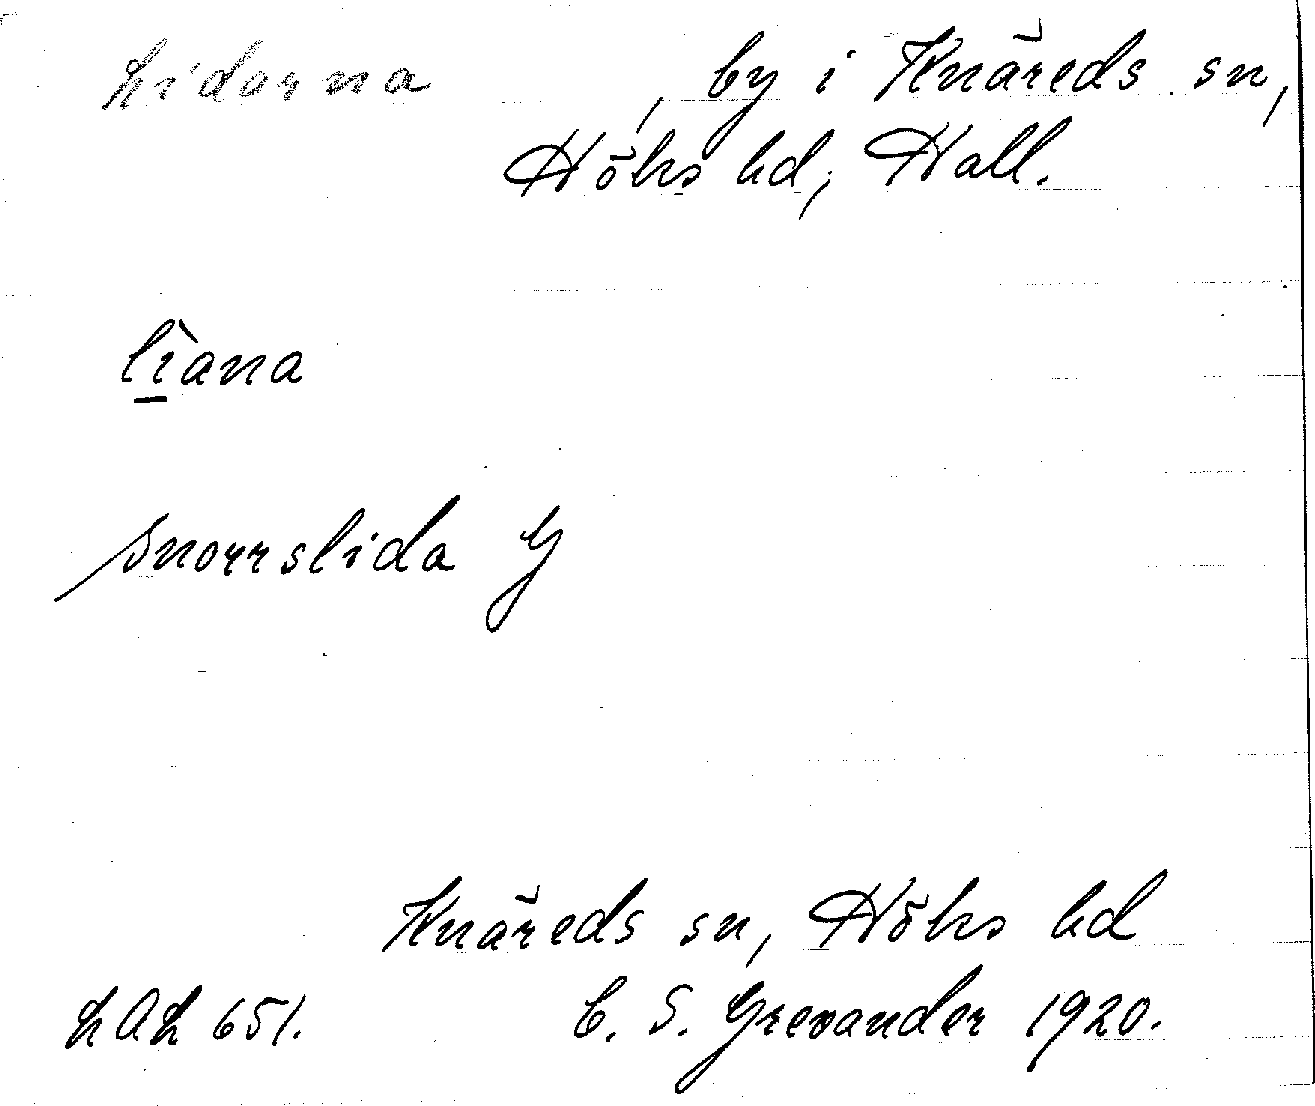 Lidarna , by i Knäreds sn,
Höks hd, Hall.
lìana
Snorrslida G
Knäreds sn, Höks hd
LAL 651. C. S. Grevander 1920.